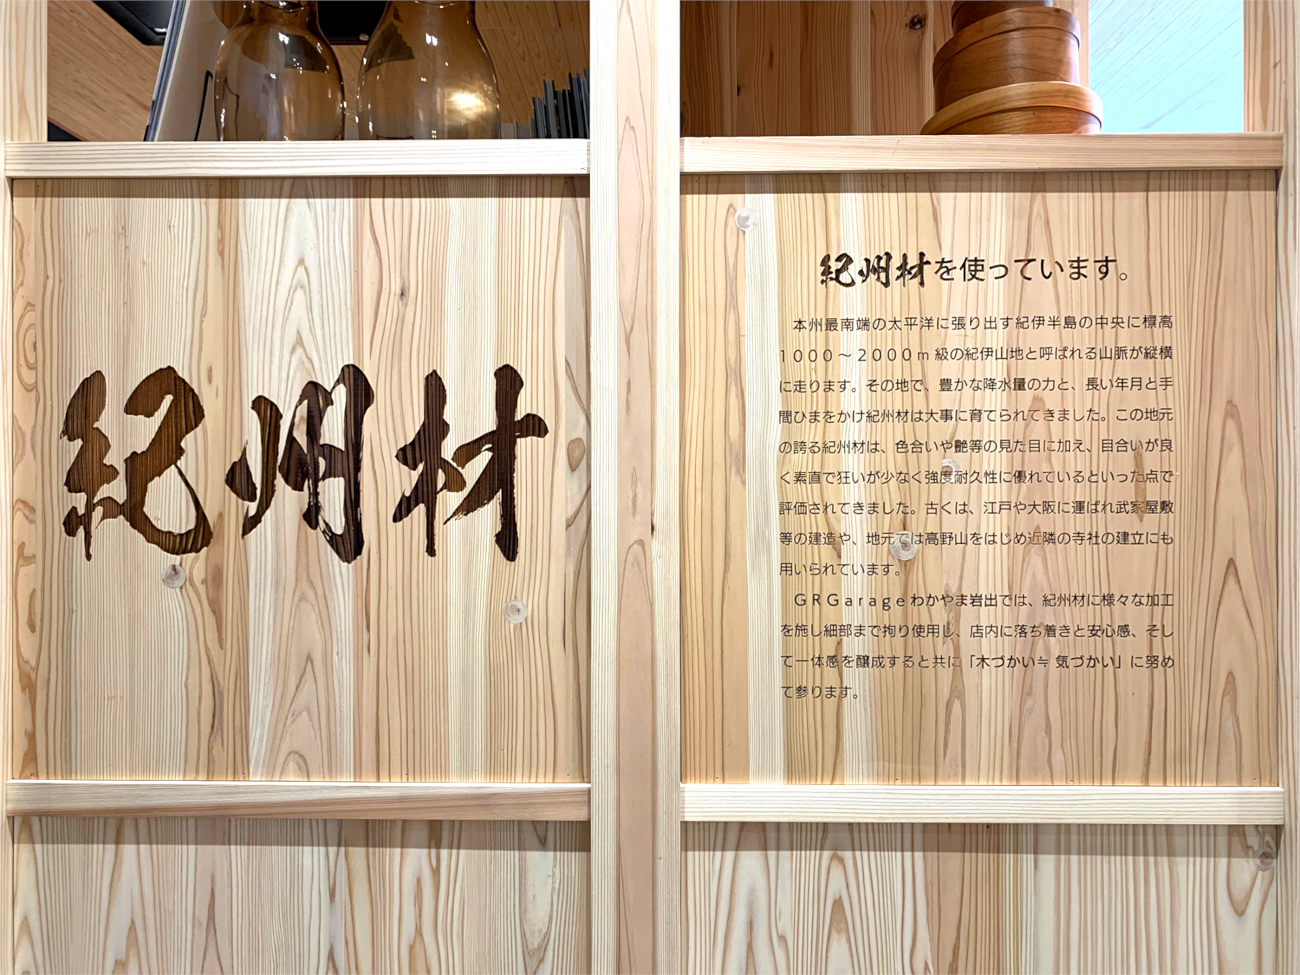 紀州材
紀州材を使っています。
本州最南端の太平洋に張り出す紀伊半島の中央に標高
1000～2000m級の紀伊山地と呼ばれる山脈が縦横
に走ります。その地で、豊かな降水量の力と、長い年月と手
間ひまをかけ紀州材は大事に育てられてきました。この地元
の誇る紀州材は、色合いや艶等の見た目に加え、目合いが良
く素直で狂いが少なく強度耐久性に優れているといった点で
評価されてきました。古くは、江戸や大阪に運ばれ武家屋敷
等の建造や、地元では高野山をはじめ近隣の寺社の建立にも
用いられています。
GRGarageわかやま岩出では、紀州材に様々な加工
を施し細部まで拘り使用し、店内に落ち着きと安心感、そし
て一体感を醸成すると共に「木づかい≒気づかい」に努め
て参ります。